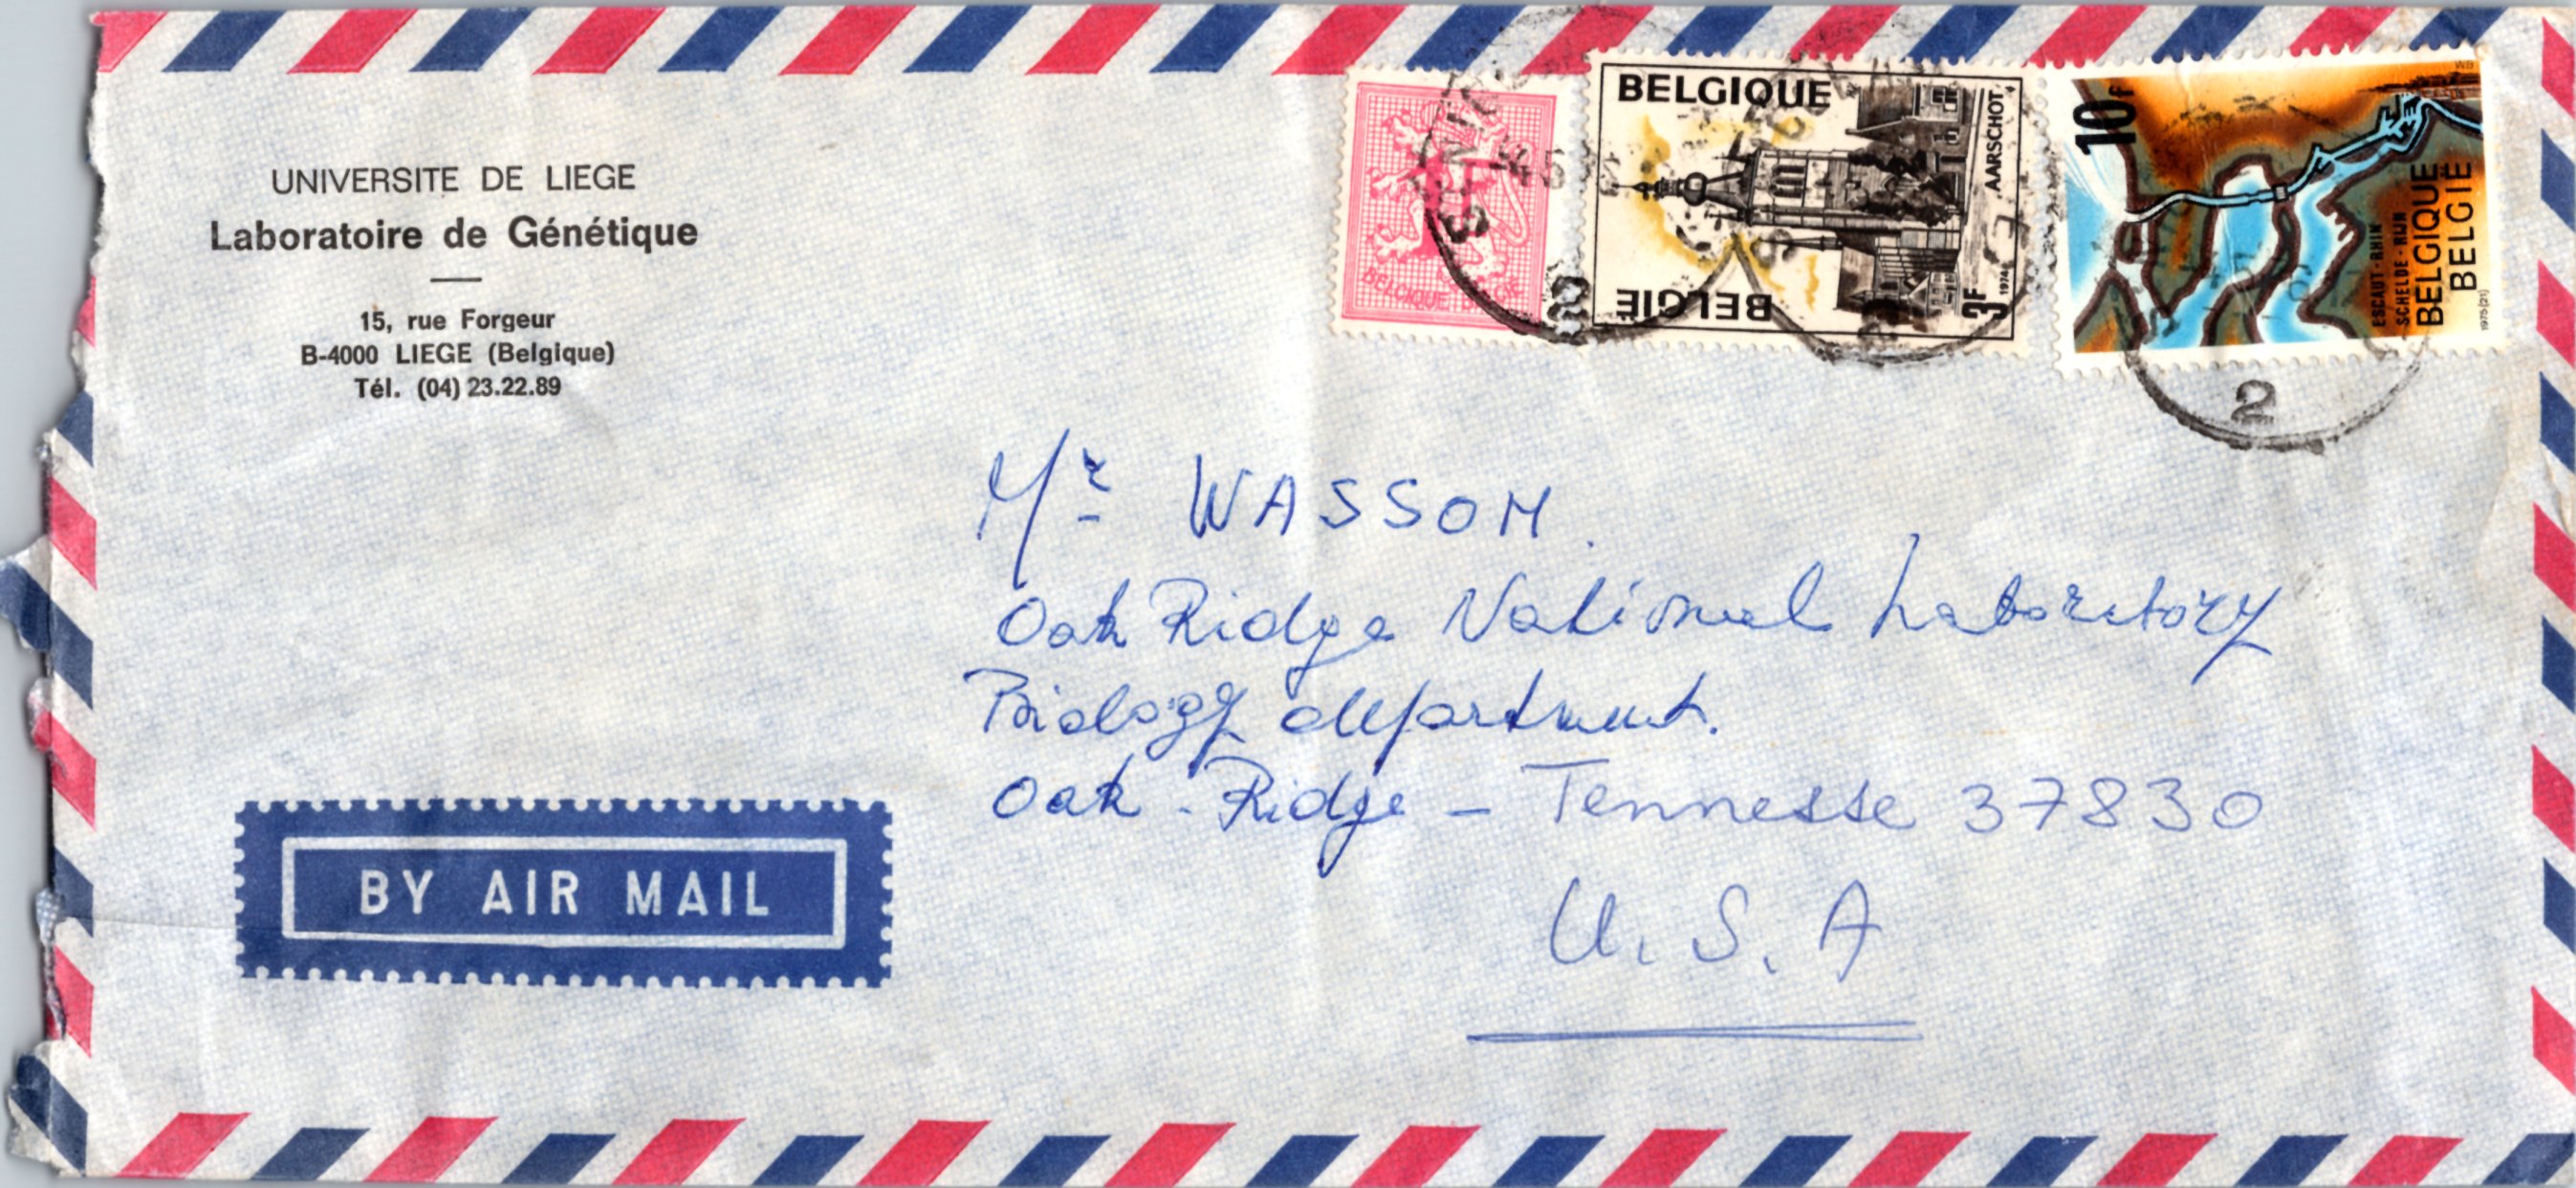 UNIVERSITE DE LIEGE
Laboratoire de Génétique
15, rue Forgeur
B-4000 LIEGE (Belgique)
Tél. (04) 23.22.89
BELGIQUE BELGIE
BELGIQUE
AARSCHOT
BELGIE
3F
1974
10F
ESCAUT-RHIN
SCHELDE-RIJN
BELGIQUE
BELGIË
1975 (21)
2
Mr WASSOM.
Oak Ridge National Laboratory
Biology department.
Oak-Ridge - Tennesse 37830
U.S.A
BY AIR MAIL